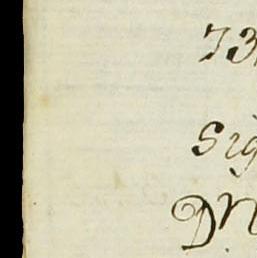 73
Sig
Dn